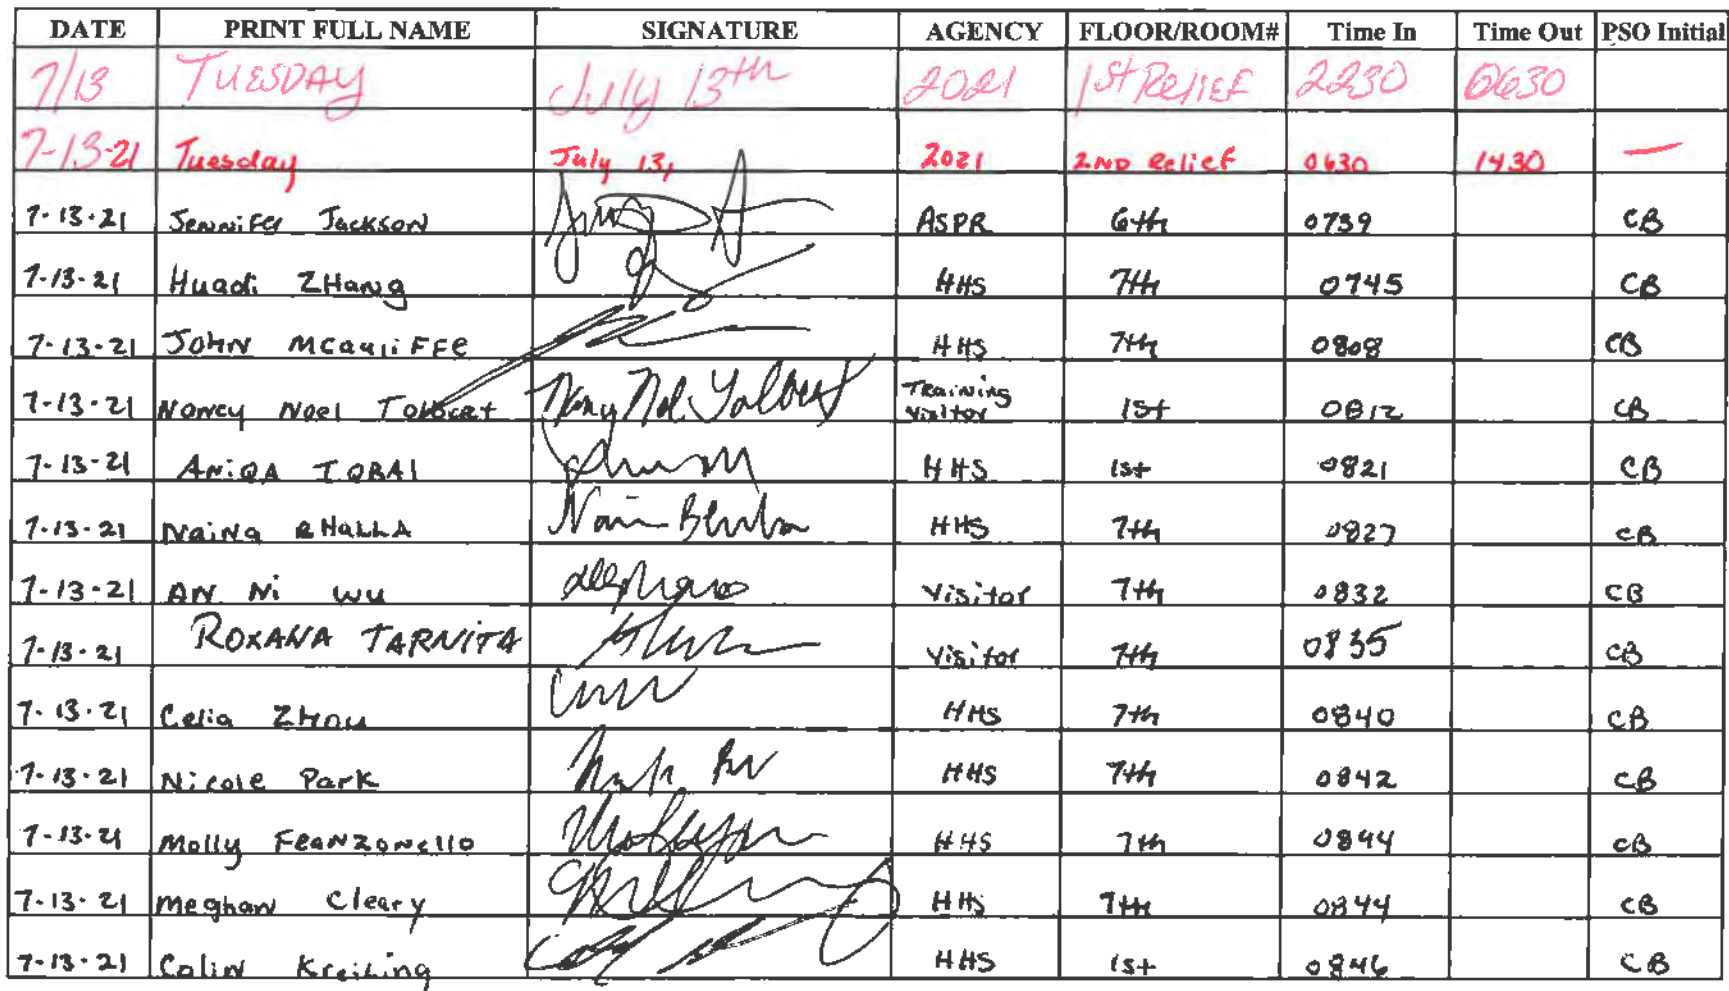 DATE PRINT FULL NAME SIGNATURE AGENCY FLOOR/ROOM# Time In Time Out PSO Initial
7/13 TUESDAY July 13th 2021 1st Relief 2230 0630
7-13-21 Tuesday July 13, 2021 2ND Relief 0630 1430 —
7-13-21 Jennifer Jackson ASPR 6th 0739 CB
7-13-21 Huadi ZHang HHS 7th 0745 CB
7-13-21 John Mcauliffe HHS 7th 0808 CB
7-13-21 Nancy Noel Tolbert Nancy Noel Tolbert Training Visitor 1st 0812 CB
7-13-21 Aniqa Iqbal HHS 1st 0821 CB
7-13-21 Naina BHALLA HHS 7th 0827 CB
7-13-21 AN Ni Wu Visitor 7th 0832 CB
7-13-21 ROXANA TARNITA Visitor 7th 0835 CB
7-13-21 Celia Zhou HHS 7th 0840 CB
7-13-21 Nicole Park HHS 7th 0842 CB
7-13-21 Molly Feanzonello HHS 7th 0844 CB
7-13-21 Meghan Cleary HHS 7th 0844 CB
7-13-21 Colin Kreiling HHS 1st 0846 CB